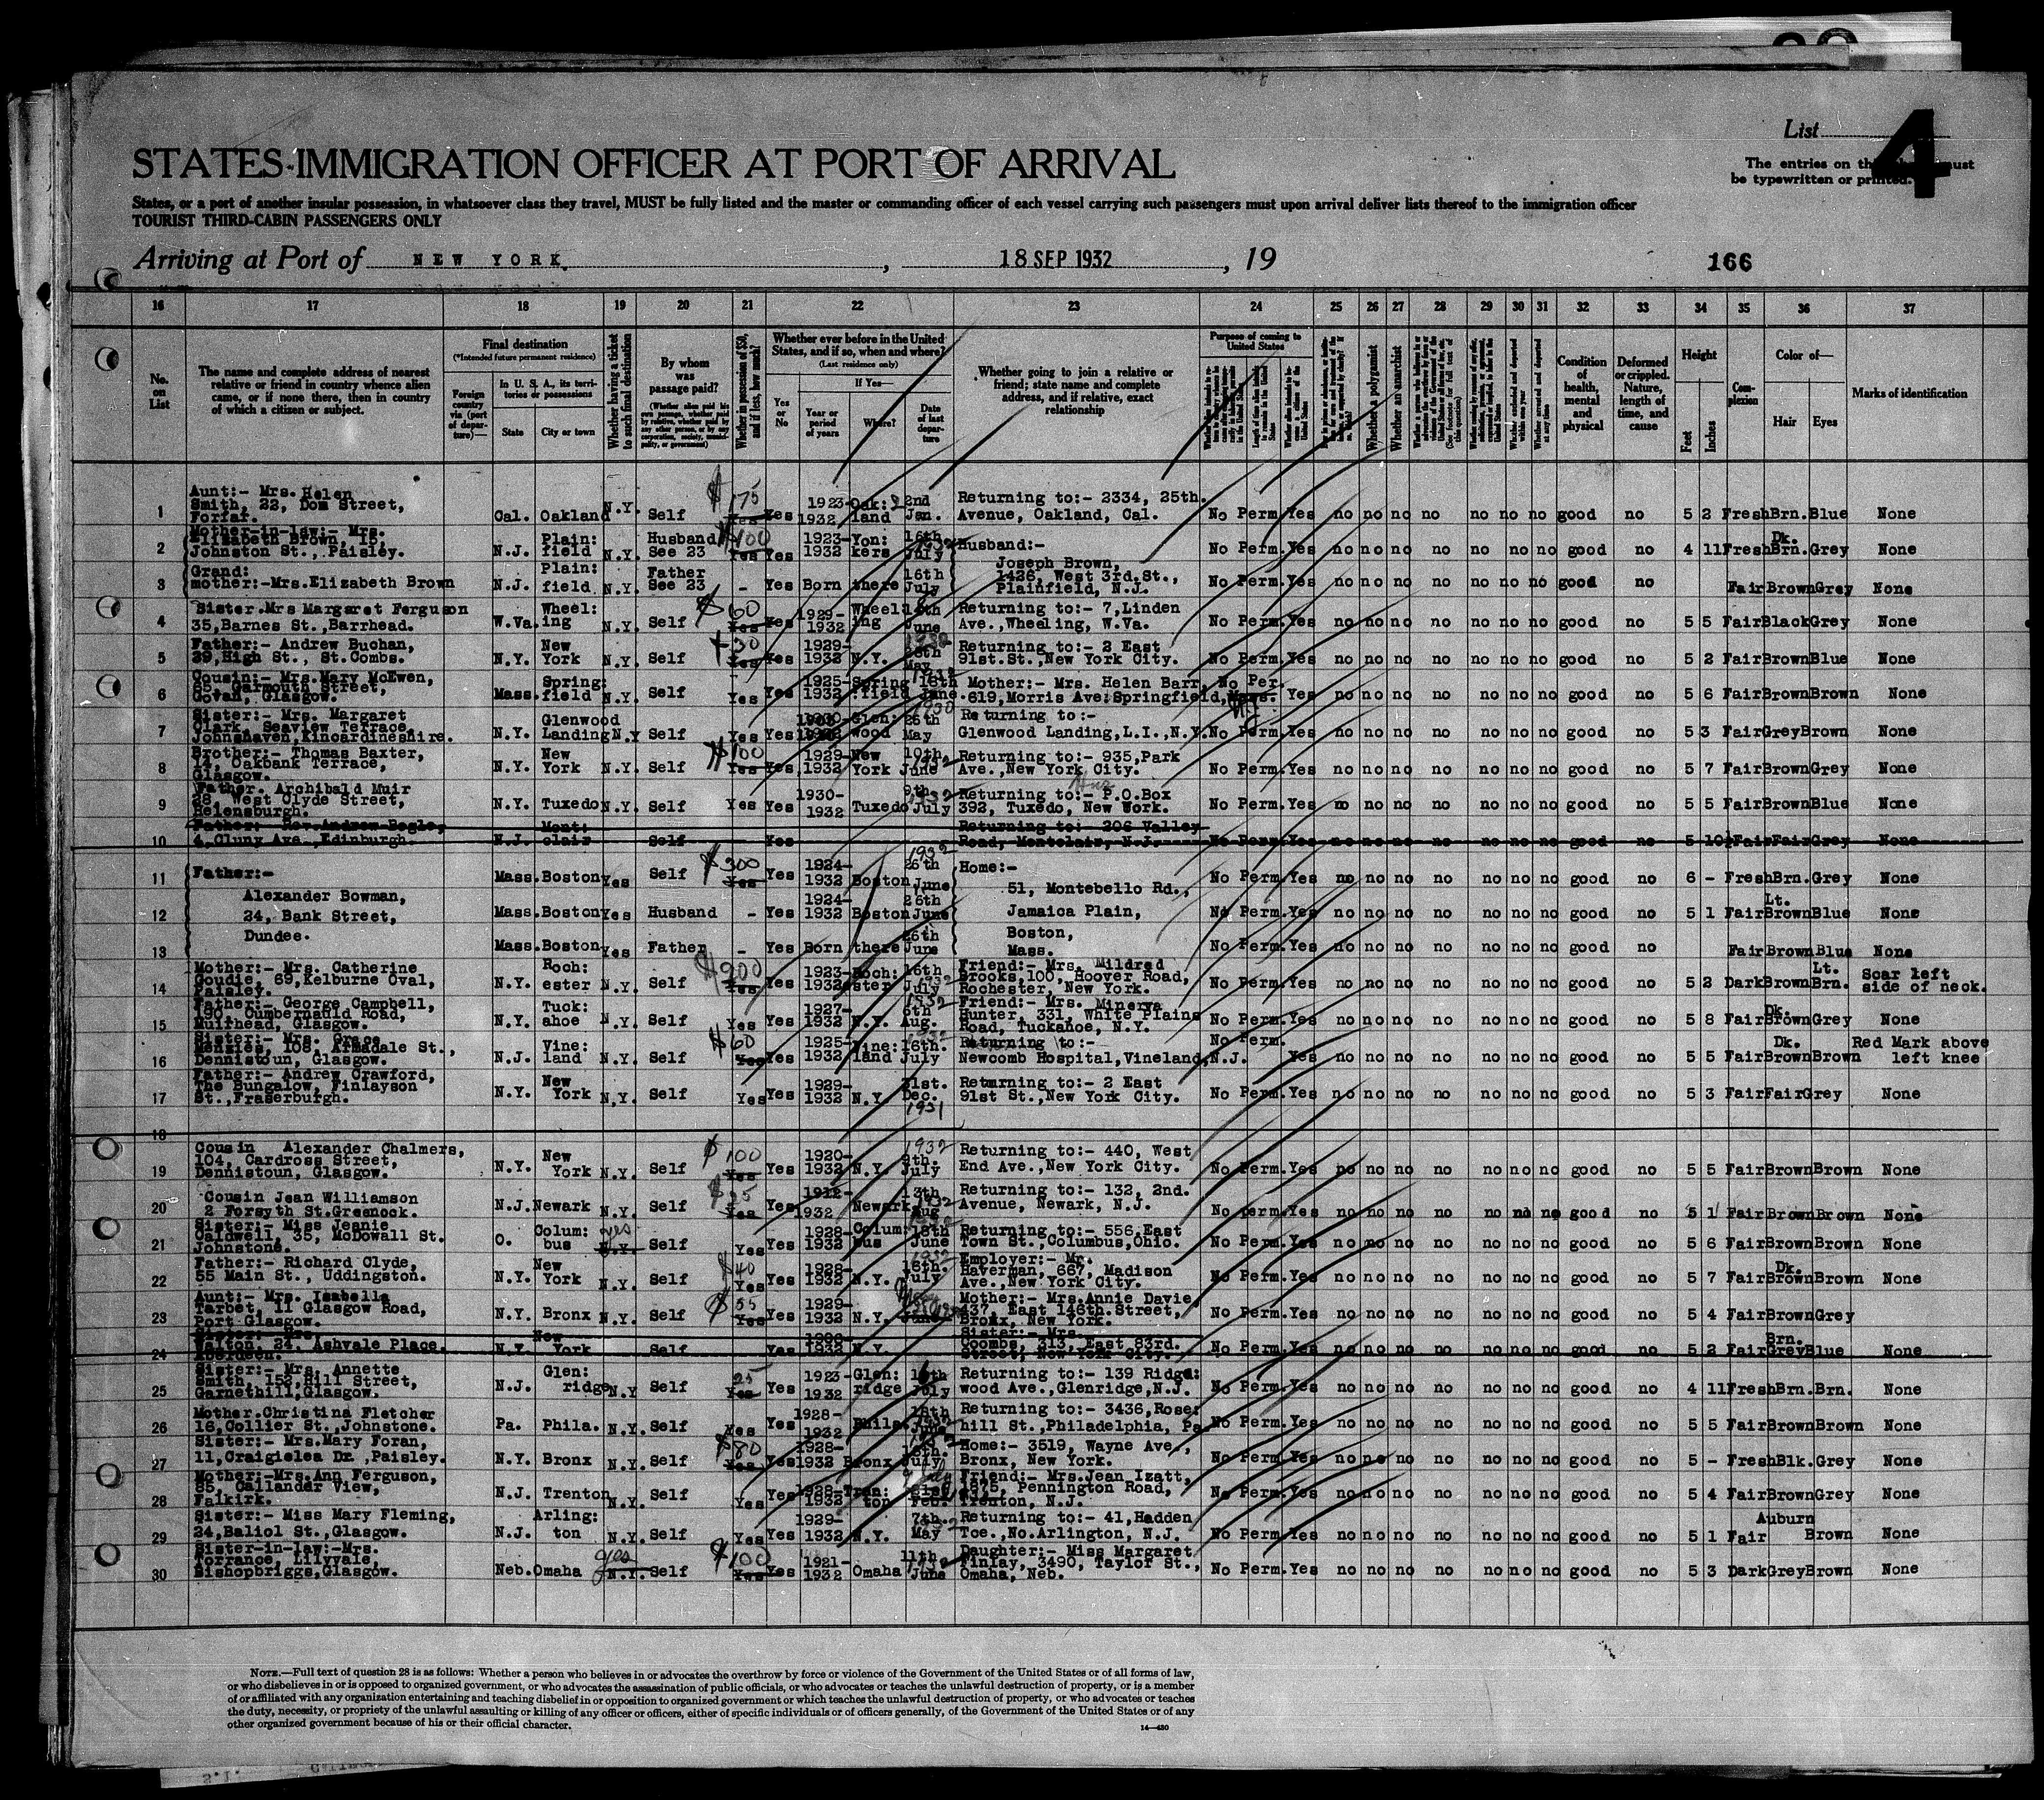 List 4
STATES IMMIGRATION OFFICER AT PORT OF ARRIVAL
The entries on must
be typewritten or printed.
States, or a port of another insular possession, in whatsoever class they travel, MUST be fully listed and the master or commanding officer of each vessel carrying such passengers must upon arrival deliver lists thereof to the immigration officer
TOURIST THIRD-CABIN PASSENGERS ONLY
Arriving at Port of NEW YORK. , 18 SEP 1932 , 19
166
16 17 18 19 20 21 22 23 24 25 26 27 28 29 30 31 32 33 34 35 36 37
No. on List
The name and complete address of nearest relative or friend in country whence alien came, or if none there, then in country of which a citizen or subject.
Final destination
(*Intended future permanent residence)
Foreign country via (port of departure)—
In U. S. A., its territories or possessions
State City or town
Whether having a ticket to such final destination
By whom was passage paid?
(Whether alien paid his own passage, whether paid by relative, whether paid by any other person, or by any corporation, society, municipality, or government)
Whether in possession of $50, and if less, how much?
Whether ever before in the United States, and if so, when and where?
(Last residence only)
Yes or No
If Yes—
Year or period of years Where? Date of last departure
Whether going to join a relative or friend; state name and complete address, and if relative, exact relationship
Purpose of coming to United States
Whether a polygamist
Whether an anarchist
Condition of health, mental and physical
Deformed or crippled. Nature, length of time, and cause
Height
Feet Inches
Complexion
Color of—
Hair Eyes
Marks of identification
1 Aunt:- Mrs. Helen Smith, 22, Dom Street, Forfar. Cal. Oakland N.Y. Self $175 Yes Yes 1923-1932 Oak:land 2nd Jan. Returning to:- 2334, 25th. Avenue, Oakland, Cal. No Perm. Yes no no no no no no no good no 5 2 Fresh Brn. Blue None
2 Mother-in-law:- Mrs. Elizabeth Brown, 15, Johnston St., Paisley. N.J. Plain:field N.Y. Husband See 23 $100 Yes Yes 1923-1932 Yon:kers 16th July Husband:- Joseph Brown, 1426, West 3rd. St., Plainfield, N.J. No Perm. Yes no no no no no no no good no 4 11 Fresh Dk. Brn. Grey None
3 Grand:mother:-Mrs.Elizabeth Brown N.J. Plain:field N.Y. Father See 23 - Yes Born there 16th July No Perm. Yes no no no no no no no good no Fair Brown Grey None
4 Sister.Mrs Margaret Ferguson 35,Barnes St.,Barrhead. W.Va. Wheel:ing N.Y. Self $60 Yes Yes 1929-1932 Wheeling June Returning to:- 7,Linden Ave.,Wheeling, W.Va. No Perm. Yes no no no no no no no good no 5 5 Fair Black Grey None
5 Father:- Andrew Buchan, 39,High St., St.Combs. N.Y. New York N.Y. Self 30 Yes Yes 1929-1932 N.Y. May Returning to:- 2 East 91st.St.,New York City. No Perm. Yes no no no no no no no good no 5 2 Fair Brown Blue None
6 Cousin:- Mrs.Mary McEwen, Street, Govan, Glasgow. Mass. Spring:field N.Y. Self Yes Yes 1925-1932 Spring:field 18th June. Mother:- Mrs. Helen Barr, 619,Morris Ave:Springfield, Mass. No Per. Yes no no no no no no no good no 5 6 Fair Brown Brown None
7 Sister:- Mrs. Margaret Clark, Seaview Terrace, Johnshaven,Kincardineshire. N.Y. Glenwood Landing N.Y Self Yes Yes Glen:wood May 1930 Returning to:- Glenwood Landing,L.I.,N.Y. No Perm. Yes no no no no no no no good no 5 3 Fair Grey Brown None
8 Brother:- Thomas Baxter, 14, Oakbank Terrace, Glasgow. N.Y. New York N.Y. Self $100 Yes Yes 1929-1932 New York 10th June Returning to:- 935,Park Ave.,New York City. No Perm. Yes no no no no no no no good no 5 7 Fair Brown Grey None
9 Father. Archibald Muir 28, West Clyde Street, Helensburgh. N.Y. Tuxedo N.Y. Self Yes Yes 1930-1932 Tuxedo 9th July 1932 Returning to:- P.O.Box 392, Tuxedo, New Work. No Perm. Yes no no no no no no no good no 5 5 Fair Brown Blue None
10 Father:- Rev.Andrew Bogle, 4,Cluny Ave.,Edinburgh. N.J. Mont:clair Self Yes Returning to:- 206 Valley Road, Montclair, N.J. No Perm. Yes no no no no no no no good no 5 10½ Fair Fair Grey None
11 Father:- Alexander Bowman, 24, Bank Street, Dundee. Mass. Boston Yes Self $300 Yes Yes 1924-1932 Boston 26th June 1932 Home:- 51, Montebello Rd., Jamaica Plain, Boston, Mass. No Perm. Yes no no no no no no no good no 6 - Fresh Brn. Grey None
12 Mass. Boston Yes Husband - Yes 1924-1932 Boston 26th June No Perm. Yes no no no no no no no good no 5 1 Fair Lt. Brown Blue None
13 Mass. Boston Yes Father - Yes Born there 26th June No Perm. Yes no no no no no no no good no Fair Brown Blue None
14 Mother:- Mrs. Catherine Goudie, 69,Kelburne Oval, Paisley. N.Y. Roch:ester N.Y. Self $200 Yes Yes 1923-1932 Roch:ester 16th July Friend:- Mrs. Mildred Brooks,100, Hoover Road, Rochester, New York. No Perm. Yes no no no no no no no good no 5 2 Dark Brown Lt. Brn. Scar left side of neck.
15 Father:- George Campbell, 190, Cumbernauld Road, Muirhead, Glasgow. N.Y. Tuck:ahoe N.Y. Self Yes Yes 1927-1932 N.Y. 6th Aug. 1932 Friend:- Mrs. Minerva Hunter, 331, White Plains Road, Tuckahoe, N.Y. No Perm. Yes no no no no no no no good no 5 8 Fair Dk. Brown Grey None
16 Sister:- Mrs. Grace Menzies, 108, Armadale St., Dennistoun, Glasgow. N.J. Vine:land N.Y. Self $60 Yes Yes 1925-1932 Vine:land 16th. July Returning to:- Newcomb Hospital,Vineland,N.J. No Perm. Yes no no no no no no no good no 5 5 Fair Dk. Brown Brown Red Mark above left knee
17 Father:- Andrew Crawford, The Bungalow, Finlayson St.,Fraserburgh. N.Y. New York N.Y. Self Yes Yes 1929-1932 N.Y. 31st. Dec. 1931 Returning to:- 2 East 91st St.,New York City. No Perm. Yes no no no no no no no good no 5 3 Fair Fair Grey None
18
19 Cousin Alexander Chalmers, 104, Cardross Street, Dennistoun, Glasgow. N.Y. New York N.Y. Self $100 Yes Yes 1920-1932 N.Y. 9th. July 1932 Returning to:- 440, West End Ave.,New York City. No Perm. Yes no no no no no no no good no 5 5 Fair Brown Brown None
20 Cousin Jean Williamson 2 Forsyth St.Greenock. N.J. Newark N.Y. Self $25 Yes Yes 1912-1932 Newark 13th Aug 1932 Returning to:- 132, 2nd. Avenue, Newark, N.J. No perm. Yes no no no no no no no good no 5 1 Fair Brown Brown None
21 Sister:- Miss Jeanie Caldwell, 35, McDowall St. Johnstone. O. Colum:bus yes N.Y. Self Yes Yes 1928-1932 Colum:bus 18th June Returning to:- 556,East Town St.,Columbus,Ohio. No Perm. Yes no no no no no no no good no 5 6 Fair Brown Brown None
22 Father:- Richard Clyde, 55 Main St., Uddingston. N.Y. New York N.Y. Self $40 Yes Yes 1928-1932 N.Y. 16th. July 1932 Employer:- Mr. Haverman, 667, Madison Ave.,New York City. No Perm. Yes no no no no no no no good no 5 7 Fair Dk. Brown Brown None
23 Aunt:- Mrs. Isabella Tarbet, 11 Glasgow Road, Port Glasgow. N.Y. Bronx N.Y. Self $55 Yes Yes 1929-1932 N.Y. June Mother:- Mrs.Annie Davie, 437, East 146th.Street, Bronx, New York. No Perm. Yes no no no no no no no good no 5 4 Fair Brown Grey
24 Sister:- Mrs. Walton, 24, Ashvale Place, Aberdeen. N.Y. New York Self Yes 1932 N.Y. Sister:- Mrs. Coombs, 313, East 83rd. Street, New York City. No Perm. Yes no no no no no no no good no 5 2 Fair Brn. Grey Blue None
25 Sister:- Mrs. Annette Smith, 152,Hill Street, Garnethill,Glasgow. N.J. Glen:ridge N.Y Self 25 Yes Yes 1923-1932 Glen:ridge July Returning to:- 139 Ridge:wood Ave.,Glenridge,N.J. No Perm. Yes no no no no no no no good no 4 11 Fresh Brn. Brn. None
26 Mother.Christina Fletcher 16,Collier St.,Johnstone. Pa. Phila. N.Y. Self Yes Yes 1928-1932 Phila. 18th June Returning to:- 3436, Rose:hill St.,Philadelphia, Pa. No Perm. Yes no no no no no no no good no 5 5 Fair Brown Brown None
27 Sister:- Mrs.Mary Foran, 11,Craigielea Dr.,Paisley. N.Y. Bronx N.Y. Self $80 Yes Yes 1928-1932 Bronx July Home:- 3519, Wayne Ave., Bronx, New York. No Perm. Yes no no no no no no no good no 5 - Fresh Blk. Grey None
28 Mother:-Mrs.Ann Ferguson, 85, Callander View, Falkirk. N.J. Trenton N.Y. Self Yes Yes 1928-1932 Tren:ton Feb. Friend:- Mrs.Jean Izatt, 1675, Pennington Road, Trenton, N.J. No Perm. Yes no no no no no no no good no 5 4 Fair Brown Grey None
29 Sister:- Miss Mary Fleming, 24,Baliol St.,Glasgow. N.J. Arling:ton N.Y. Self Yes Yes 1929-1932 N.Y. 7th. May Returning to:- 41,Hadden Tce.,No.Arlington, N.J. No Perm. Yes no no no no no no no good no 5 1 Fair Auburn Brown None
30 Sister-in-law:-Mrs. Torrance, Lilyvale, Bishopbriggs,Glasgow. Neb. Omaha yes N.Y. Self $100 Yes Yes 1921-1932 Omaha 11th. June Daughter:- Miss Margaret Finlay, 3490, Taylor St., Omaha, Neb. No Perm. Yes no no no no no no no good no 5 3 Dark Grey Brown None
NOTE.—Full text of question 28 is as follows: Whether a person who believes in or advocates the overthrow by force or violence of the Government of the United States or of all forms of law,
or who disbelieves in or is opposed to organized government, or who advocates the assassination of public officials, or who advocates or teaches the unlawful destruction of property, or is a member
of or affiliated with any organization entertaining and teaching disbelief in or opposition to organized government or which teaches the unlawful destruction of property, or who advocates or teaches
the duty, necessity, or propriety of the unlawful assaulting or killing of any officer or officers, either of specific individuals or of officers generally, of the Government of the United States or of any
other organized government because of his or their official character.
14—430